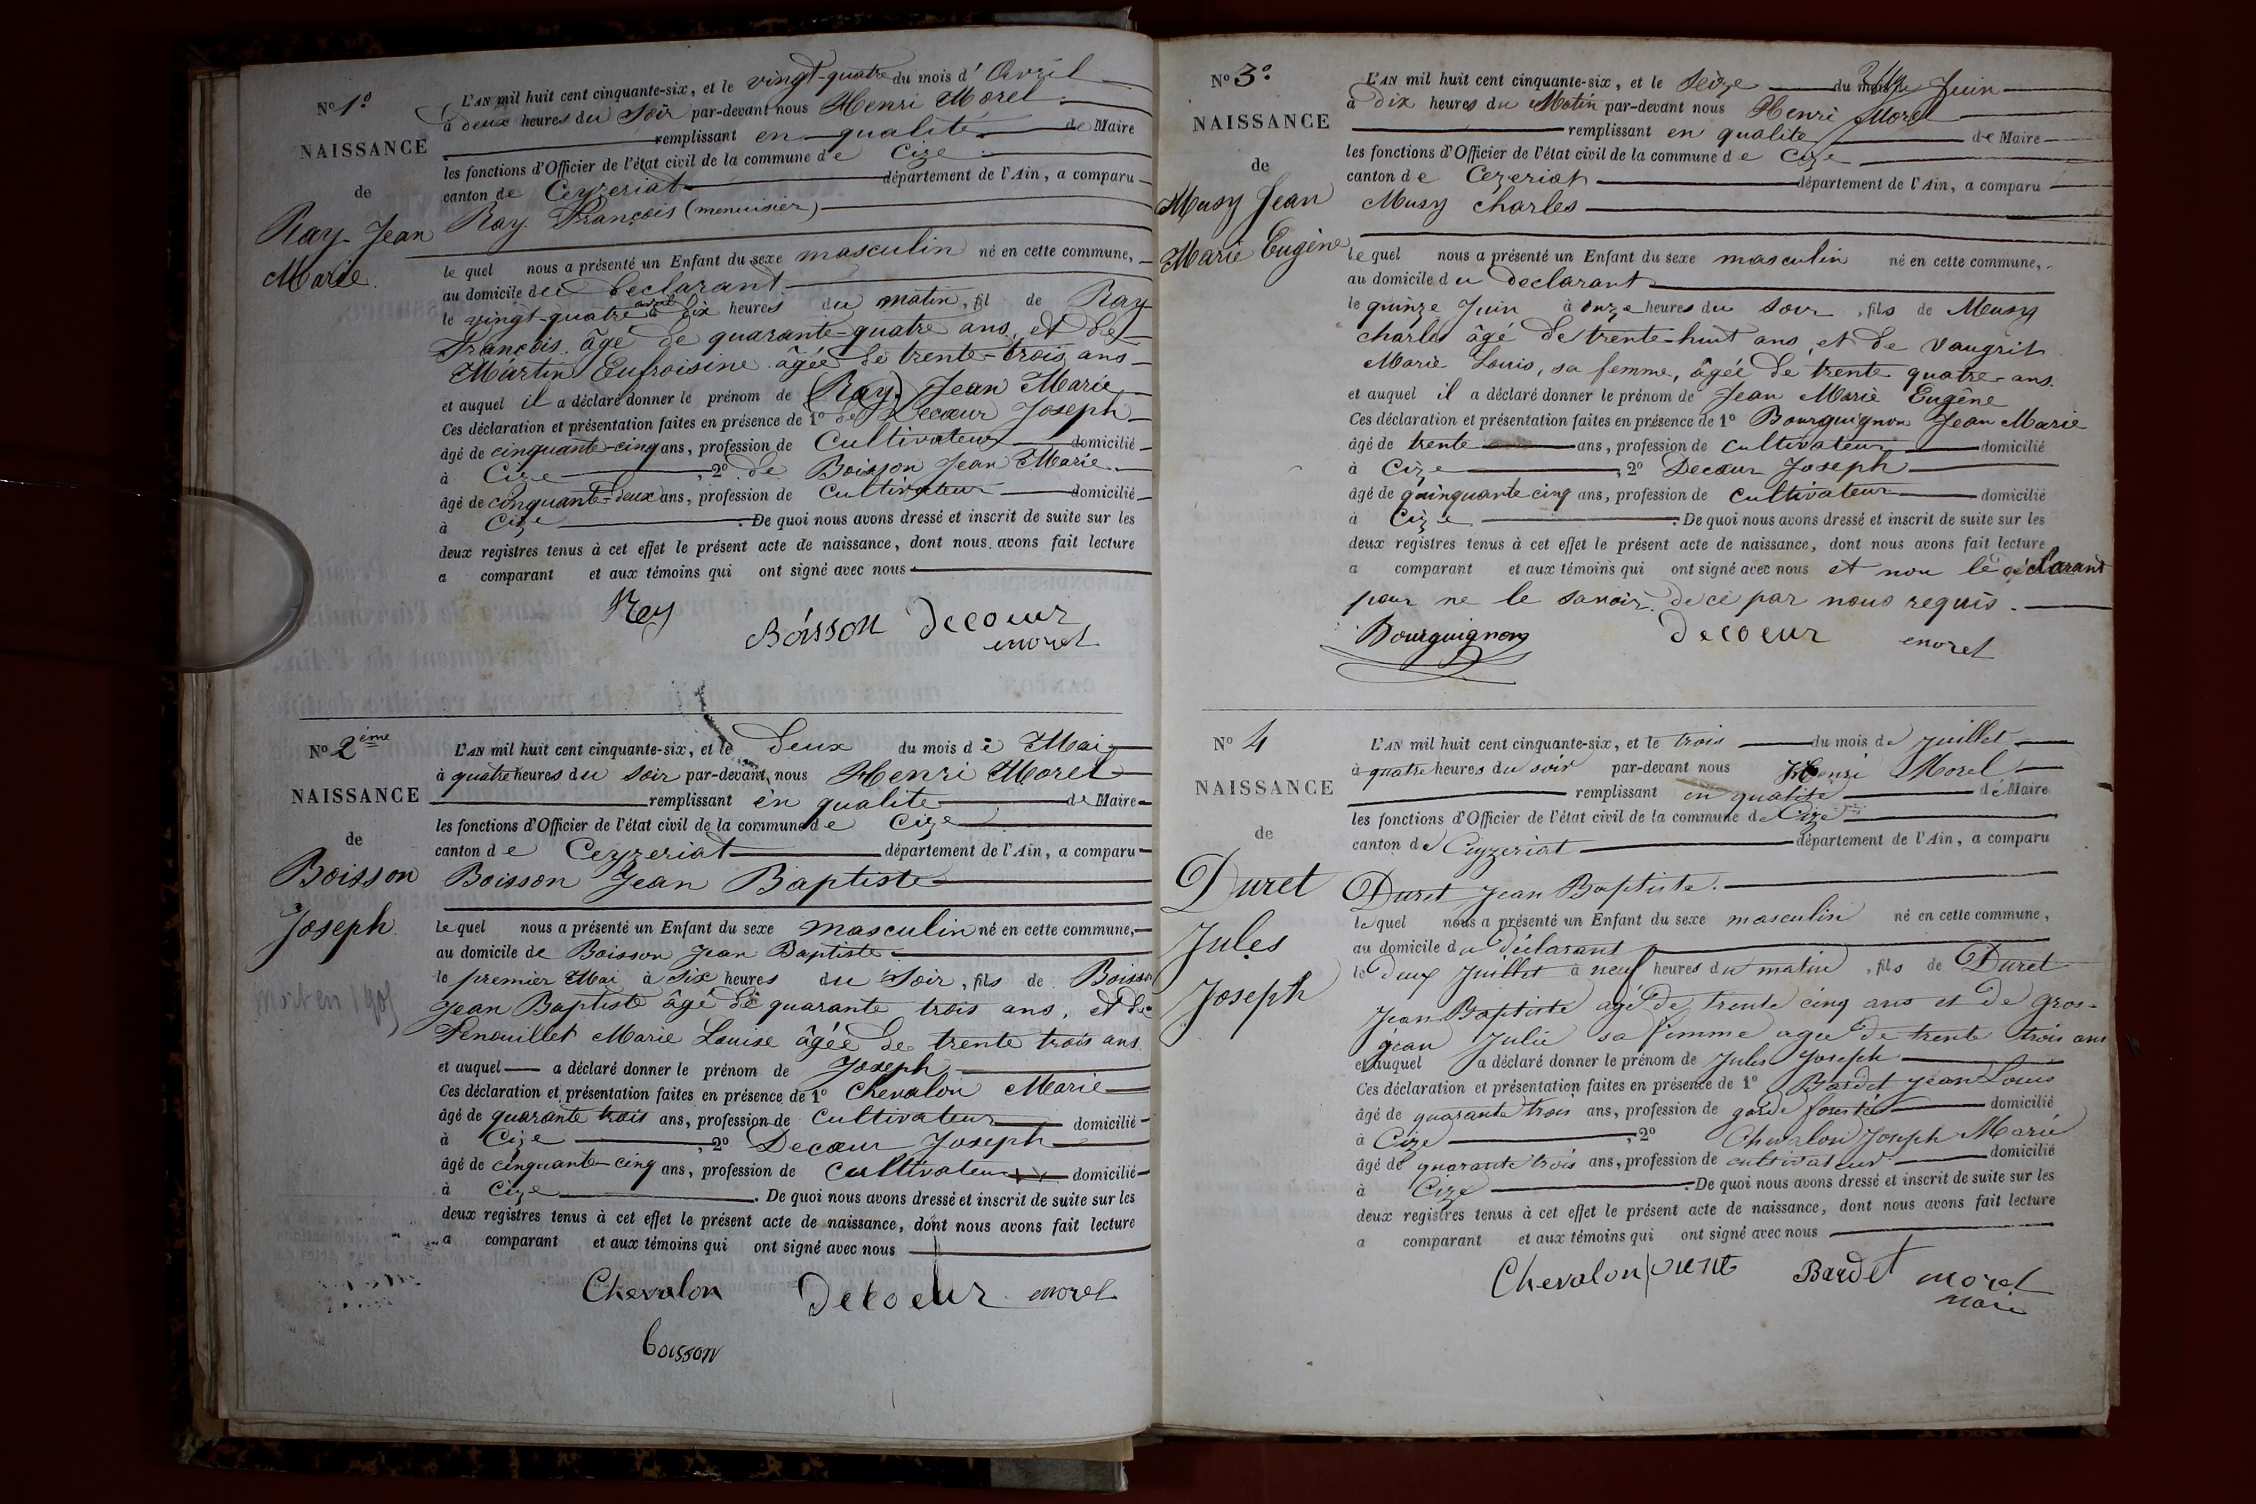 N° 1°
NAISSANCE
de
Ray Jean
Marie.
L'AN mil huit cent cinquante-six, et le vingt-quatre du mois d'Avril
à deux heures du Soir par-devant nous Henri Morel
remplissant en qualité de Maire
les fonctions d'Officier de l'état civil de la commune de Cize
canton de Ceyzeriat département de l'Ain, a comparu
Ray François (menuisier)
lequel nous a présenté un Enfant du sexe masculin né en cette commune,
au domicile du declarant
le vingt-quatre avril à dix heures du matin, fil de Ray
François âgé de quarante-quatre ans, et de
Martin Eufroisine âgée de trente-trois ans
et auquel il a déclaré donner le prénom de (Ray) Jean Marie
Ces déclaration et présentation faites en présence de 1° de Decœur Joseph
âgé de cinquante-cinq ans, profession de Cultivateur domicilié
à Cize, 2° de Boisson Jean Marie
âgé de cinquante-deux ans, profession de Cultivateur domicilié
à Cize. De quoi nous avons dressé et inscrit de suite sur les
deux registres tenus à cet effet le présent acte de naissance, dont nous avons fait lecture
a comparant et aux témoins qui ont signé avec nous
Rey
Boisson Decoeur
morel
N° 2ème
NAISSANCE
de
Boisson
Joseph.
L'AN mil huit cent cinquante-six, et le deux du mois de Mai
à quatre heures du soir par-devant nous Henri Morel
remplissant en qualité de Maire
les fonctions d'Officier de l'état civil de la commune de Cize
canton de Ceyzeriat département de l'Ain, a comparu
Boisson Jean Baptiste
lequel nous a présenté un Enfant du sexe masculin né en cette commune,
au domicile de Boisson Jean Baptiste
le premier Mai à six heures du Soir, fils de Boisson
Jean Baptiste âgé de quarante trois ans, et de
Penouillet Marie Louise âgée de trente trois ans.
et auquel a déclaré donner le prénom de Joseph
Ces déclaration et présentation faites en présence de 1° Chevalon Marie
âgé de quarante trois ans, profession de Cultivateur domicilié
à Cize, 2° Decœur Joseph
âgé de cinquante-cinq ans, profession de Cultivateur domicilié
à Cize. De quoi nous avons dressé et inscrit de suite sur les
deux registres tenus à cet effet le présent acte de naissance, dont nous avons fait lecture
a comparant et aux témoins qui ont signé avec nous
Chevalon Decoeur morel
boisson
N° 3°
NAISSANCE
de
Musy Jean
Marie Eugène
L'AN mil huit cent cinquante-six, et le Seize du mois de Juin
à Dix heures du Matin par-devant nous Henri Morel
remplissant en qualité de Maire
les fonctions d'Officier de l'état civil de la commune de Cize
canton de Cezeriat département de l'Ain, a comparu
Musy charles
lequel nous a présenté un Enfant du sexe masculin né en cette commune,
au domicile du declarant
le quinze Juin à onze heures du soir, fils de Musy
charles âgé de trente-huit ans, et de Vaugrit
Marie Louis, sa femme, âgée de trente quatre ans.
et auquel il a déclaré donner le prénom de Jean Marie Eugène
Ces déclaration et présentation faites en présence de 1° Bourguignon Jean Marie
âgé de trente ans, profession de cultivateur domicilié
à Cize, 2° Decœur Joseph
âgé de quinquante cinq ans, profession de cultivateur domicilié
à Cize. De quoi nous avons dressé et inscrit de suite sur les
deux registres tenus à cet effet le présent acte de naissance, dont nous avons fait lecture
a comparant et aux témoins qui ont signé avec nous et non le déclarant
pour ne le savoir de ce par nous requis.
Bourguignon decoeur morel
N° 4
NAISSANCE
de
Duret
Jules
Joseph
L'AN mil huit cent cinquante-six, et le trois du mois de juillet
à quatre heures du soir par-devant nous Henri Morel
remplissant en qualité de Maire
les fonctions d'Officier de l'état civil de la commune de Cize
canton de Ceyzeriat département de l'Ain, a comparu
Duret Jean Baptiste.
lequel nous a présenté un Enfant du sexe masculin né en cette commune,
au domicile du déclarant
le deux Juillet à neuf heures du matin, fils de Duret
Jean Baptiste agé de trente cinq ans et de gros-
gean Julie sa femme agée de trente trois ans
et auquel a déclaré donner le prénom de Jules Joseph
Ces déclaration et présentation faites en présence de 1° Bardet Jean Louis
âgé de quarante trois ans, profession de garde forestier domicilié
à Cize, 2° Chevalon Joseph Marie
âgé de quarante trois ans, profession de cultivateur domicilié
à Cize. De quoi nous avons dressé et inscrit de suite sur les
deux registres tenus à cet effet le présent acte de naissance, dont nous avons fait lecture
a comparant et aux témoins qui ont signé avec nous
Chevalon Bardet morel
maire